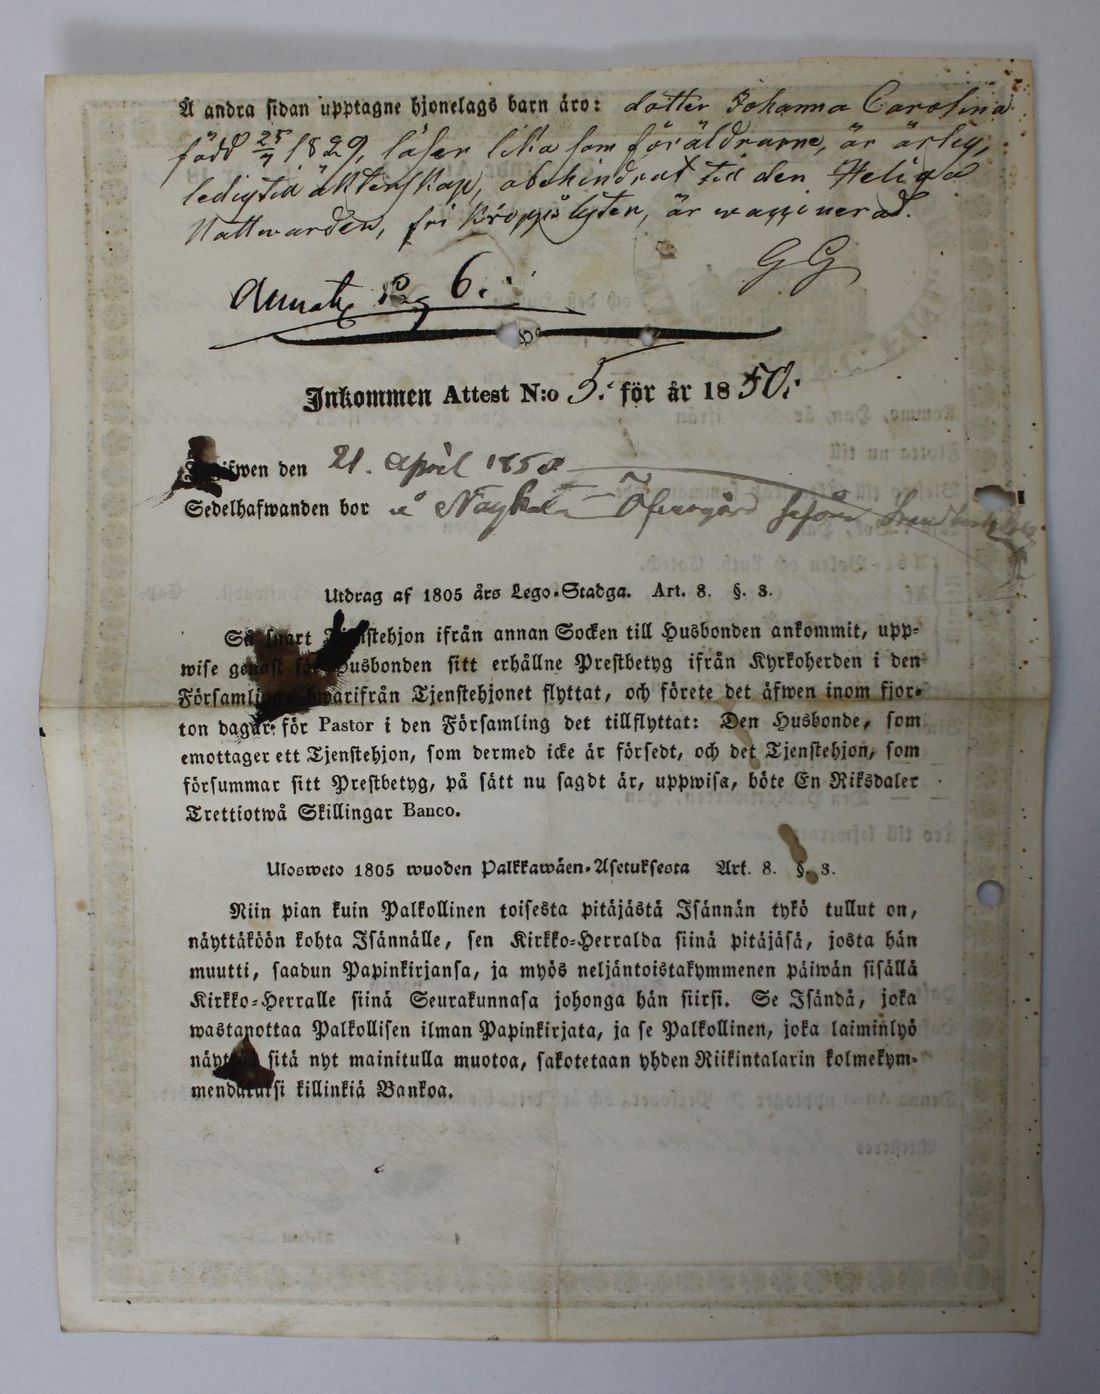 Å andra sidan upptagne hjonelags barn äro: dotter Johanna Carolina
född 25/7 1829, läser lika som föräldrarne, är ärlig,
ledig till äktenskap, obehindrad till den Heliga
Nattwarden, fri kroppslyten, är waccinerad.
GG
Pag 6.
Inkommen Attest N:o 5. för år 1850.
den 21. April 1850
Sedelhafwanden bor å
Utdrag af 1805 års Lego-Stadga. Art. 8. §. 3.
Så snart Tjenstehjon ifrån annan Socken till Husbonden ankommit, upp-
wise genast för Husbonden sitt erhållne Prestbetyg ifrån Kyrkoherden i den
Församling hwarifrån Tjenstehjonet flyttat, och förete det äfwen inom fjor-
ton dagar för Pastor i den Församling det tillflyttat: Den Husbonde, som
emottager ett Tjenstehjon, som dermed icke är försedt, och det Tjenstehjon, som
försummar sitt Prestbetyg, på sätt nu sagdt är, uppwisa, böte En Riksdaler
Trettiotwå Skillingar Banco.
Ulosweto 1805 wuoden Palkkawäen-Asetuksesta Art. 8. §. 3.
Niin pian kuin Palkollinen toisesta pitäjästä Isännän tykö tullut on,
näyttäköön kohta Isännälle, sen Kirkko-Herralda siinä pitäjäsä, josta hän
muutti, saadun Papinkirjansa, ja myös neljäntoistakymmenen päiwän sisällä
Kirkko-Herralle siinä Seurakunnasa johonga hän siirsi. Se Isändä, joka
wastanottaa Palkollisen ilman Papinkirjata, ja se Palkollinen, joka laiminlyö
sitä nyt mainitulla muotoa, sakotetaan yhden Riikintalarin kolmekym-
killinkiä Bankoa.